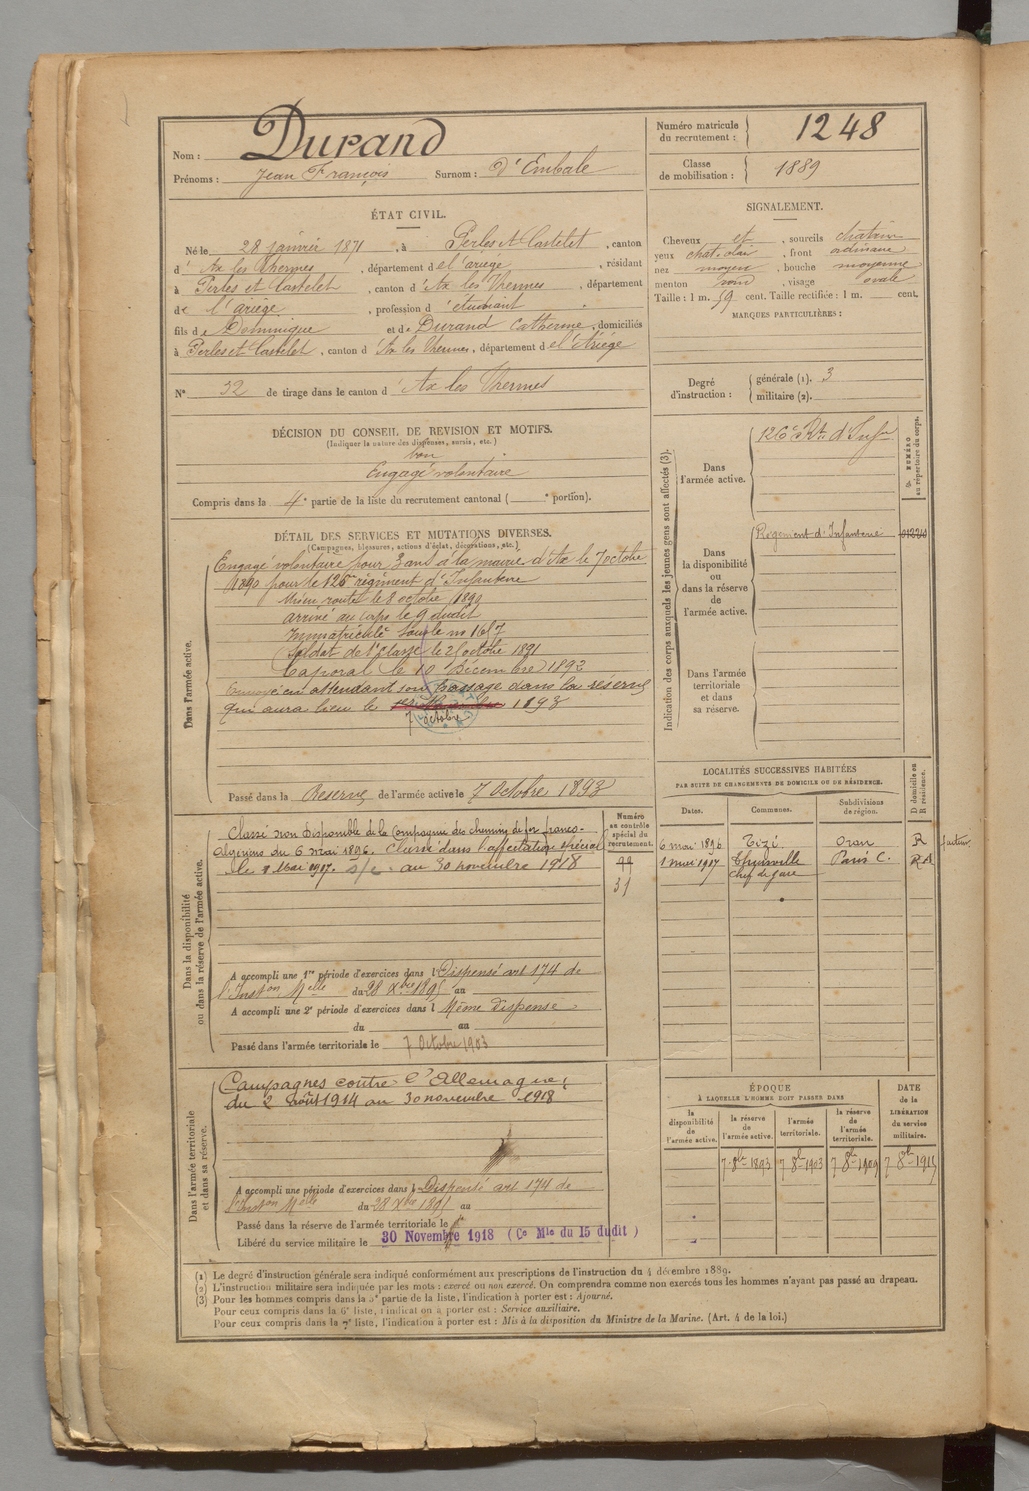 Nom : Durand
Prénoms : Jean François Surnom : d'Embale
Numéro matricule du recrutement : 1248
Classe de mobilisation : 1889
ÉTAT CIVIL.
Né le 28 janvier 1871, à Perles et Castelet, canton
d'Ax les Thermes, département de l'ariège, résidant
à Perles et Castelet, canton d'Ax les Thermes, département
de l'ariège, profession d'étudiant
fils de Dominique et de Durand Catherine, domiciliés
à Perles et Castelet, canton d'Ax les Thermes, département de l'Ariège
N° 32 de tirage dans le canton d'Ax les Thermes
SIGNALEMENT.
Cheveux et, sourcils chatain
yeux chat. clair, front ordinaire
nez moyen, bouche moyenne
menton rond, visage ovale
Taille : 1 m. 59 cent. Taille rectifiée : 1 m. cent.
MARQUES PARTICULIÈRES :
Degré d'instruction : générale (1). 3
militaire (2).
DÉCISION DU CONSEIL DE REVISION ET MOTIFS.
(Indiquer la nature des dispenses, sursis, etc.)
bon
Engagé volontaire
Compris dans la 4e partie de la liste du recrutement cantonal ( e portion).
DÉTAIL DES SERVICES ET MUTATIONS DIVERSES.
(Campagnes, blessures, actions d'éclat, décorations, etc.)
Dans l'armée active.
Engagé volontaire pour 3 ans à la mairie d'Ax le 7 octobre
1890 pour le 126e régiment d'Infanterie
Mis en route le 8 octobre 1890
arrivé au corps le 9 dudit
Immatriculé sous le no
Soldat de 1e classe le octobre 1891
Caporal le 10 Décembre 1892
Envoyé en attendant son passage dans la réserve
qui aura lieu le 1893
7 octobre
Passé dans la Reserve de l'armée active le 7 Octobre 1893
Indication des corps auxquels les jeunes gens sont affectés (3).
Dans l'armée active.
126e Rt d'Infie
NUMÉRO au répertoire du corps.
Dans la disponibilité ou dans la réserve de l'armée active.
Régiment d'Infanterie
Dans l'armée territoriale et dans sa réserve.
Dans la disponibilité ou dans la réserve de l'armée active.
Numéro au contrôle spécial du recrutement.
Classé non disponible de la Compagnie des chemins de fer franco-
algériens du 6 mai 1896. Classé dans l'affectation spéciale
le 1 Mai 1917. S/c. au 30 novembre 1918
31
A accompli une 1re période d'exercices dans l Dispensé art 174 de
l'Inston Melle du 28 Xbre 1895 au
A accompli une 2e période d'exercices dans l Même dispense
du au
Passé dans l'armée territoriale le 7 Octobre 1903
LOCALITÉS SUCCESSIVES HABITÉES
PAR SUITE DE CHANGEMENTS DE DOMICILE OU DE RÉSIDENCE.
Dates. Communes. Subdivisions de région. D domicile ou R résidence.
6 mai 1896 Tizi Oran R facteur
1 mai 1917 Paris C.
Chef de gare
Dans l'armée territoriale et dans sa réserve.
Campagnes contre l'Allemagne :
du 2 août 1914 au 30 novembre 1918
A accompli une période d'exercices dans l Dispensé art 174 de
l'Inston Melle du 28 Xbre 1895 au
Passé dans la réserve de l'armée territoriale le
Libéré du service militaire le 30 Novembre 1918 (Ce Mle du 15 dudit)
ÉPOQUE
À LAQUELLE L'HOMME DOIT PASSER DANS
la disponibilité de l'armée active. la réserve de l'armée active. l'armée territoriale. la réserve de l'armée territoriale.
DATE de la LIBÉRATION du service militaire.
7 8bre 1893 7 8bre 1903 7 8bre 1909 7 8bre 1915
(1) Le degré d'instruction générale sera indiqué conformément aux prescriptions de l'instruction du 4 décembre 1889.
(2) L'instruction militaire sera indiquée par les mots : exercé ou non exercé. On comprendra comme non exercés tous les hommes n'ayant pas passé au drapeau.
(3) Pour les hommes compris dans la 5e partie de la liste, l'indication à porter est : Ajourné.
Pour ceux compris dans la 6e liste, l'indication à porter est : Service auxiliaire.
Pour ceux compris dans la 7e liste, l'indication à porter est : Mis à la disposition du Ministre de la Marine. (Art. 4 de la loi.)